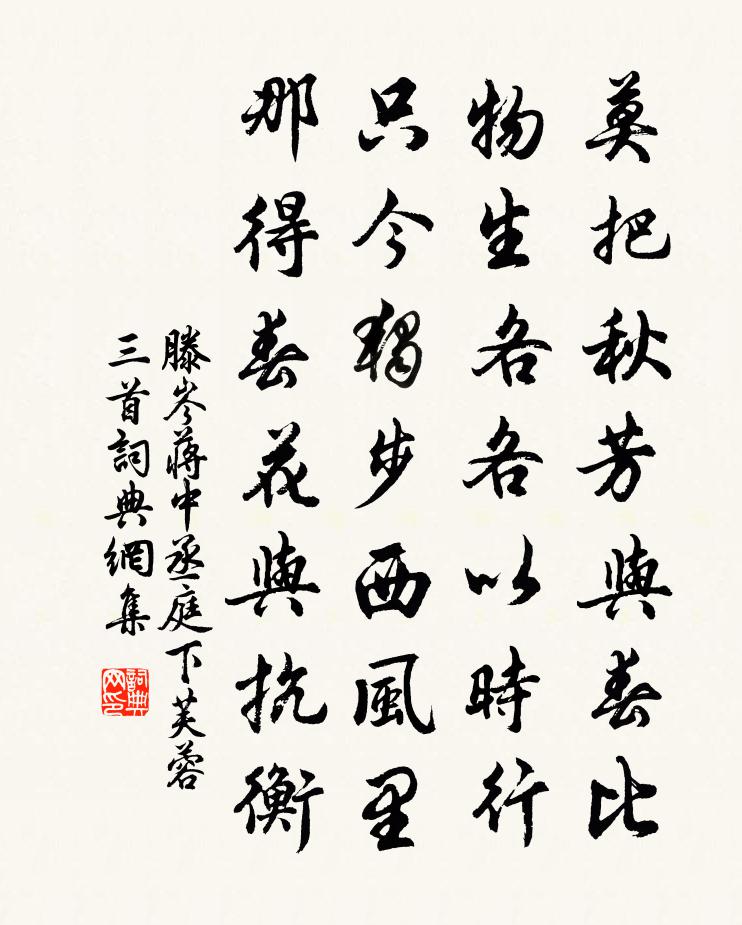 莫把秋芳與春比
物生各各以時行
只今獨步西風里
那得春花與抗衡
滕岑蔣中丞庭下芙蓉
三首詞典網集
詞典网印